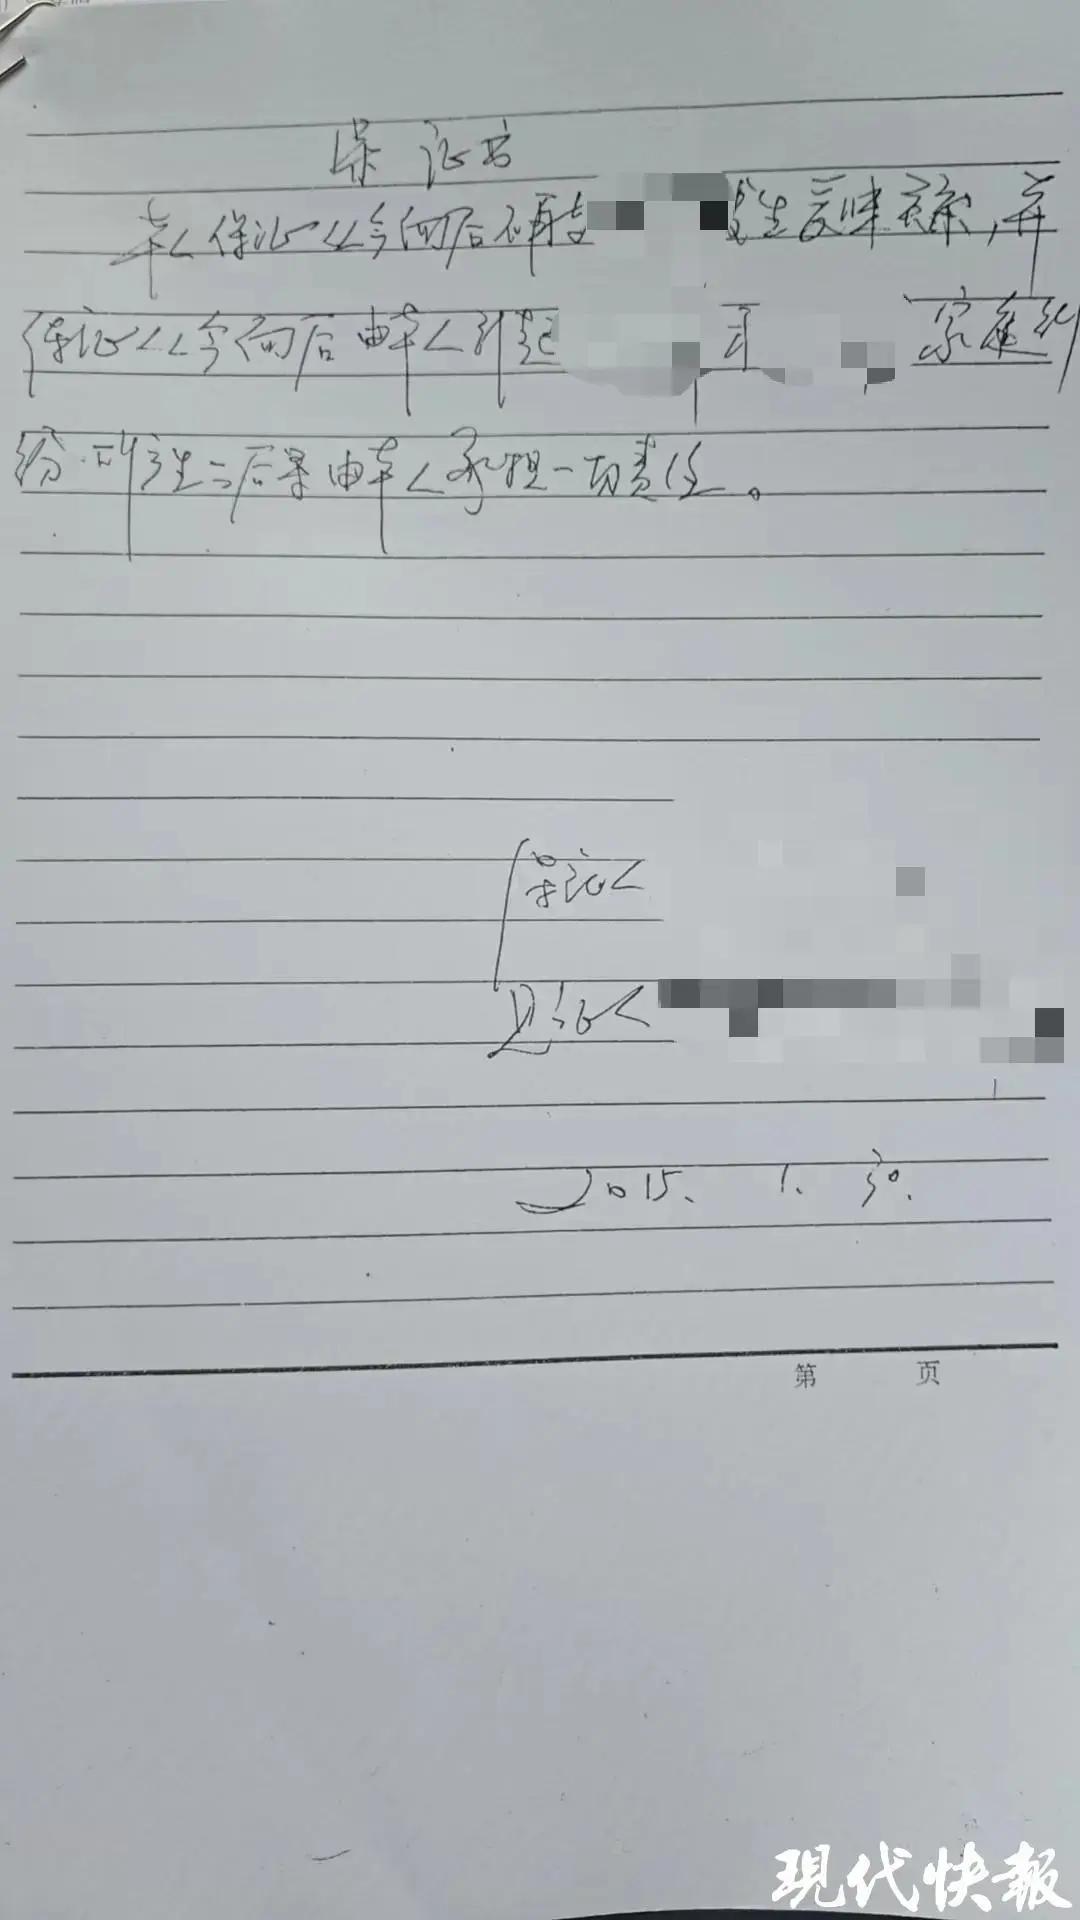 保证书
本人保证从今向后不再与 发生暧昧关系，并
保证从今向后由本人引起 家庭纠
纷.所产生二后果由本人承担一切责任。
保证人
见证人
2015. 1. 30.
第 页
现代快報